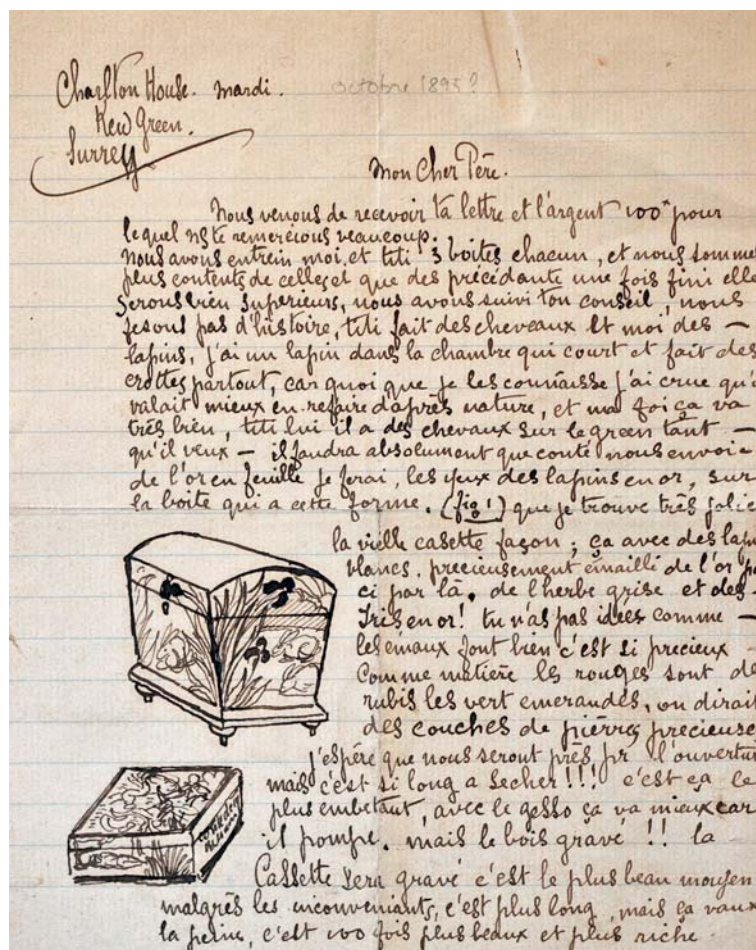 Charlton House. mardi. octobre 1895?
Kew Green.
Surrey
Mon Cher Père.
Nous venons de recevoir ta lettre et l'argent 100* pour
lequel ns te remercious beaucoup.
nous avons entrein moi et titi 3 boites chacun, et nous somme
plus contents de celles que des précédante une fois fini elle
serons bien superieurs, nous avons suivi ton conseil, nous
fesons pas d'histoire, titi fait des cheveaux et moi des —
lapins, j'ai un lapin dans la chambre qui court et fait des
crottes partout, car quoi que je les connaisse j'ai crue qu'i
valait mieux en refaire d'après nature, et ma foi ça va
très bien, titi lui il a des chevaux sur le green tant —
qu'il veux — il faudra absolument que conté nous envoie
de l'or en feuille je ferai, les yeux des lapins en or, sur
la boite qui a cette forme. (fig 1) que je trouve très jolie
la vielle casette façon; ça avec des lapi
blancs. precieusement émailli de l'or pa
ci par là. de l'herbe grise et des.
Iris en or! tu n'as pas idées comme —
les émaux font bien c'est si precieux
Comme matière les rouges sont de
rubis les vert emeraudes, on dirait
des couches de pierres precieuse
j'espère que nous seront près pr l'ouvertur
mais c'est si long a secher!!! c'est ça le
plus embetant, avec le gesso ça va mieux car
il pompe. mais le bois gravé!! la
Cassette sera gravé c'est le plus beau moyen
malgrès les inconveniants, c'est plus long, mais ça vaux
la peine, c'est 100 fois plus beaux et plus riche.